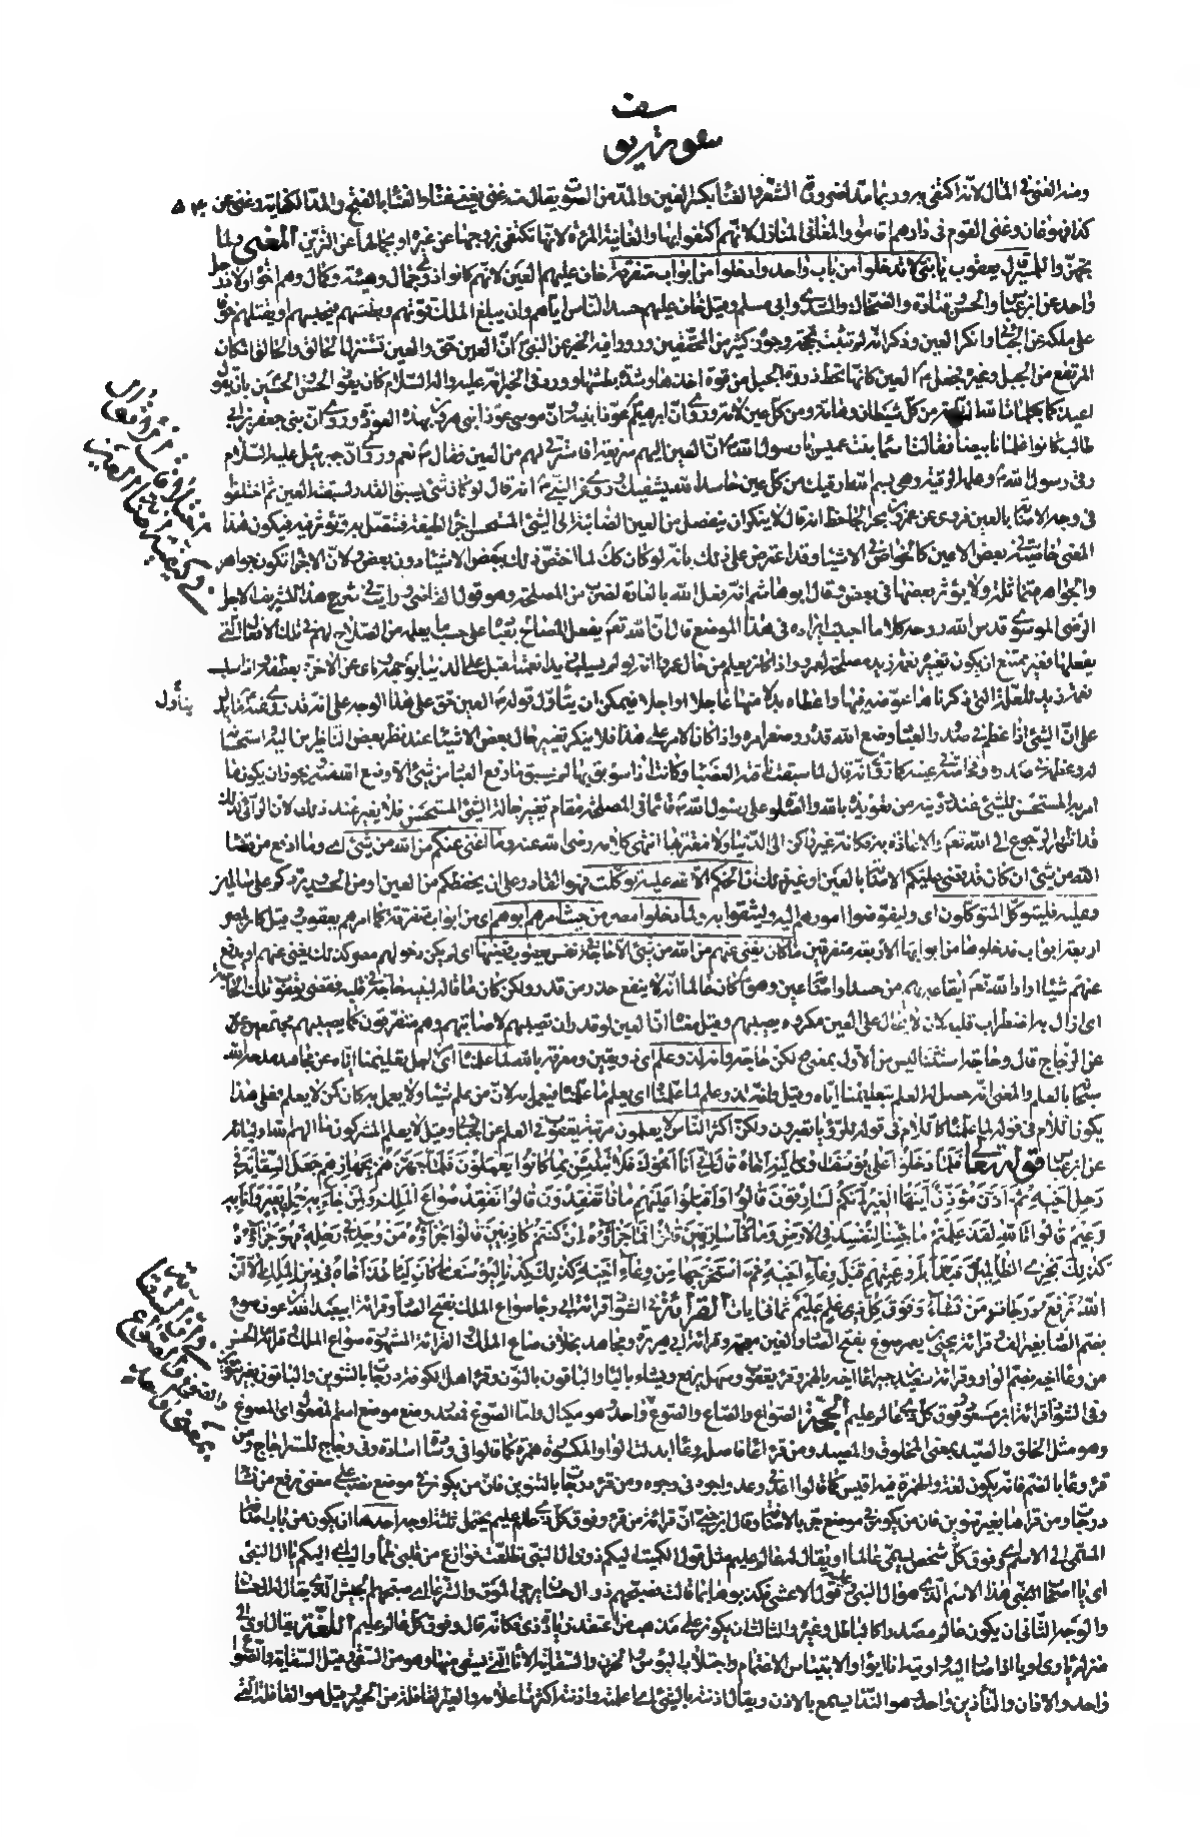 سورة يوسف
ومنه الغنى في المال لأنه اكتفى به وربما مد لضرورة الشعر والغنا بكسر الغين والمد من الصوت يقال منه غنى يغني غناء والغناء بالفتح والمد الكفاية وغنى عن
كذا فهو غان وغنى القوم في دارهم أقاموا والمغاني المنازل لأنهم اكتفوا بها والغانية المرءة لأنها تكتفي بزوجها عن غيره أو بجمالها عن التزين المعنى ولما
تجهزوا للمسير قال يعقوب يا بني لا تدخلوا من باب واحد وادخلوا من أبواب متفرقة خاف عليهم العين لأنهم كانوا ذوي جمال وهيئة وكمال وهم إخوة أولاد رجل
واحد عن ابن عباس والحسن وقتادة والضحاك والسدي وأبي مسلم وقيل خاف عليهم حسد الناس إياهم وأن يبلغ الملك قوتهم وبطشهم فيحبسهم أو يقتلهم خوفا
على ملكه عن الجبائي وأنكر العين وذكر أنه لم تثبت بحجة وجوزه كثير من المحققين ورووا فيه الخبر عن النبي أن العين حق والعين تستنزل الحالق والحالق المكان
المرتفع من الجبل وغيره فجعل العين كأنها تحط ذروة الجبل من قوة أخذها وشدة بطشها وورد في الخبر أنه عليه وآله السلام كان يعوذ الحسن والحسين بأن يقول
أعيذكما بكلمات الله التامة من كل شيطان وهامة ومن كل عين لامة وروي أن إبراهيم عوذ ابنيه وأن موسى عوذ ابني هرون بهذه العوذة وروي أن بني جعفر بن أبي
طالب كانوا غلمانا بيضا فقالت أسماء بنت عميس يا رسول الله إن العين إليهم سريعة أفأسترقي لهم من العين فقال نعم وروي أن جبرئيل عليه السلام
رقى رسول الله وعلمه الرقية وهي بسم الله أرقيك من كل عين حاسد الله يشفيك وروي عن النبي أنه قال لو كان شيء يسبق القدر لسبقته العين ثم اختلفوا
في وجه الإصابة بالعين فروي عن عمرو بن بحر الجاحظ أنه قال لا ينكر أن ينفصل من العين الصائبة إلى الشيء المستحسن أجزاء لطيفة فتتصل به وتؤثر فيه فيكون هذا
المعنى خاصية في بعض الأعين كالخواص في الأشياء وقد اعترض على ذلك بأنه لو كان كذلك لما اختص ذلك ببعض الأشياء دون بعض ولأن الأجزاء تكون جواهر
والجواهر متماثلة ولا يؤثر بعضها في بعض وقال أبو هاشم أنه فعل الله بالعادة لضرب من المصلحة وهو قول القاضي ورأيت في شرح هذا للشريف الأجل
الرضي الموسوي قدس الله روحه كلاما أحببت إيراده في هذا الموضع قال إن الله تعالى يفعل المصالح بعباده على حسب ما يعلمه من الصلاح لهم في تلك الأفعال التي
يفعلها فغير ممتنع أن يكون تغييره نعمة زيد مصلحة لعمرو وإذا كان يعلم من حال عمرو أنه لو لم يسلب زيدا نعمته أقبل على الدنيا بوجهه ونأى عن الآخرة بعطفه وإذا سلب
نعمة زيد للعلة التي ذكرناها عوضه فيها وأعطاه بدلا منها عاجلا أو آجلا فيمكن أن يتأول قوله العين حق على هذا الوجه على أنه قد روي عنه ما يدل
على أن الشيء إذا عظم في صدور العباد وضع الله قدره وصغر أمره وإذا كان الأمر على هذا فلا ينكر تغيير حال بعض الأشياء عند نظر بعض الناظرين إليه واستحسانه
له وعظمه في صدره وفخامته في عينه كما روي أنه قال لما سبقت ناقته العضباء وكانت إذا سوبق بها لم تسبق ما رفع العباد من شيء إلا وضع الله منه ويجوز أن يكون ما
أمر به المستحسن للشيء عند رؤيته من تعويذه بالله والصلوة على رسول الله قائما في المصلحة مقام تغيير حالة الشيء المستحسن فلا يغير عند ذلك لأن الرائي لذلك
قد أظهر الرجوع إلى الله تعالى والإعاذة به فكأنه غير راكن إلى الدنيا ولا مغتر بها انتهى كلامه رضي الله عنه وما أغني عنكم من الله من شيء أي وما أدفع من قضاء
الله من شيء إن كان قد قضى عليكم الإصابة بالعين أو غير ذلك إن الحكم إلا لله عليه توكلت فهو القادر على أن يحفظكم من العين أو من الحسد ويردكم علي سالمين
وعليه فليتوكل المتوكلون أي وليفوضوا أمورهم إليه وليثقوا به ولما دخلوا مصر من حيث أمرهم أبوهم أي من أبواب متفرقة كما أمرهم يعقوب وقيل كان لمصر
أربعة أبواب فدخلوها من أبوابها الأربعة متفرقين ما كان يغني عنهم من الله من شيء إلا حاجة في نفس يعقوب قضيها أي لم يكن دخولهم مصر كذلك يغني عنهم أو يدفع
عنهم شيئا أراد الله تعالى إيقاعه بهم من حسد أو إصابة عين وهو كان عالما أنه لا ينفع حذر من قدر ولكن كان ما قاله لبنيه حاجة في قلبه فقضى يعقوب تلك الحاجة
أي أزال به اضطراب قلبه لأن لا يحال على العين مكروه يصيبهم وقيل معناه أن العين لو قدر أن تصيبهم لأصابتهم وهم متفرقون كما يصيبهم مجتمعين عن
عن الزجاج قال وحاجة استثناء ليس من الأول بمعنى لكن حاجة وإنه لذو علم أي ذو يقين ومعرفة بالله لما علمناه أي لأجل تعليمنا إياه عن مجاهد مدحه الله
سبحانه بالعلم والمعنى أنه حصل له العلم بتعليمنا إياه وقيل وإنه لذو علم لما علمناه أي يعلم ما علمناه فيعمل به لأن من علم شيئا ولا يعمل به كان كمن لا يعلم فعلى هذا
يكون اللام في قوله لما علمناه كاللام في قوله للرؤيا تعبرون ولكن أكثر الناس لا يعلمون مرتبة يعقوب في العلم عن الجبائي وقيل لا يعلم المشركون ما ألهم الله أولياءه
عن ابن عباس قوله تعالى ولما دخلوا على يوسف آوى إليه أخاه قال إني أنا أخوك فلا تبتئس بما كانوا يعملون فلما جهزهم بجهازهم جعل السقاية في
رحل أخيه ثم أذن مؤذن أيتها العير إنكم لسارقون قالوا وأقبلوا عليهم ماذا تفقدون قالوا نفقد صواع الملك ولمن جاء به حمل بعير وأنا به
زعيم قالوا تالله لقد علمتم ما جئنا لنفسد في الأرض وما كنا سارقين قالوا فما جزاؤه إن كنتم كاذبين قالوا جزاؤه من وجد في رحله فهو جزاؤه
كذلك نجزي الظالمين فبدأ بأوعيتهم قبل وعاء أخيه ثم استخرجها من وعاء أخيه كذلك كدنا ليوسف ما كان ليأخذ أخاه في دين الملك إلا أن
يشاء الله نرفع درجات من نشاء وفوق كل ذي علم عليم ثماني آيات القراءة في الشواذ قراءة أبي رجاء صواع الملك بفتح الصاد وقراءة أبي عبد الله بن عون صوع
بضم الصاد بغير ألف وقراءة يحيى بن يعمر صوغ بفتح الصاد والغين معجمة وقراءة أبي هريرة ومجاهد بخلاف صاع الملك القراءة المشهورة صواع الملك وقراءة الحسن
من وعاء أخيه بضم الواو وقراءة سعيد بن جبير إعاء أخيه بالهمزة وقرء يعقوب وسهل يرفع ويشاء بالياء والباقون بالنون وقرء أهل الكوفة درجات بالتنوين والباقون بغير تنوين
وفي الشواذ قراءة ابن مسعود وفوق كل ذي عالم عليم الحجة الصواع والصاع والصوع واحد وهو مكيال وأما الصوغ فمصدر وضع موضع اسم المفعول أي المصوغ
وهو مثل الخلق والصيد بمعنى المخلوق والمصيد ومن قرء إعاء فأصله وعاء أبدلت الواو المكسورة همزة كما قالوا في وسادة إسادة وفي وجاج للستر إجاج ومن
قرء وعاء بالضم فإنه يكون لغة والهمزة فيه أقيس كما قالوا أعد في وعد وأجوه في وجوه ومن قرء درجات بالتنوين فإن من يكون في موضع نصب على معنى نرفع من نشاء
درجات ومن قراها بغير تنوين فإن من يكون في موضع جر بالإضافة وقال ابن جني أن قراءة من قرء وفوق كل ذي عالم عليم يحتمل ثلثة أوجه أحدها أن يكون من باب إضافة
المسمى إلى الاسم أي وفوق كل شخص يسمى عالما أو يقال له عالم عليم مثل قول الكميت إليكم ذوي آل النبي تطلعت نوازع من قلبي ظماء وألبب أي إليكم يا آل النبي
أي يا أصحاب المسمى هذا الاسم الذي هو آل النبي وعليه قول الأعشى فكذبوها بما قالت فصبحهم ذو آل حسان يزجي الموت والشرعا أي صبحهم الجيش الذي يقال له آل حسان
والوجه الثاني أن يكون عالم مصدرا كالباطل وغيره والثالث أن يكون على مذهب من اعتقد زيادة ذي فكأنه قال وفوق كل عالم عليم اللغة يقال أوى إلى
منزله يأوي أويا إذا صار إليه وآويته أنا إيواء والابتياس الاغتمام واجتلاب البؤس والحزن والسقاية الإناء التي يسقى منها وهو من السقي وقيل السقاية والصواع
واحد والأذان والتأذين واحد وهو النداء يسمع بالأذن ويقال آذنته بالشيء أي أعلمته وأذنته أكثرت إعلامه والعير القافلة من الحمير وقيل هو القافلة التي